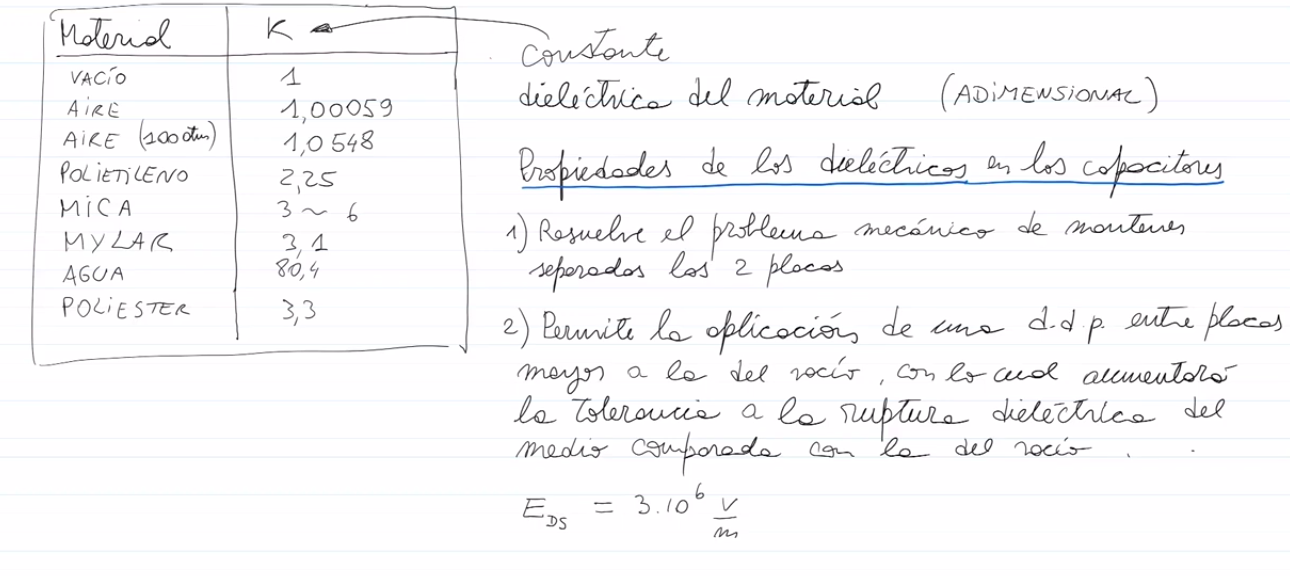 Material K
VACÍO 1
AIRE 1,00059
AIRE (100 atm) 1,0548
POLIETILENO 2,25
MICA 3 ~ 6
MYLAR 3,1
AGUA 80,4
POLIESTER 3,3
constante
dieléctrica del material (ADIMENSIONAL)
Propiedades de los dieléctricos en los capacitores
1) Resuelve el problema mecánico de mantener
separadas las 2 placas
2) Permite la aplicación de una d.d.p. entre placas
mayor a la del vacío, con lo cual aumentará
la tolerancia a la ruptura dieléctrica del
medio comparada con la del vacío.
E_DS = 3.10⁶ V/m